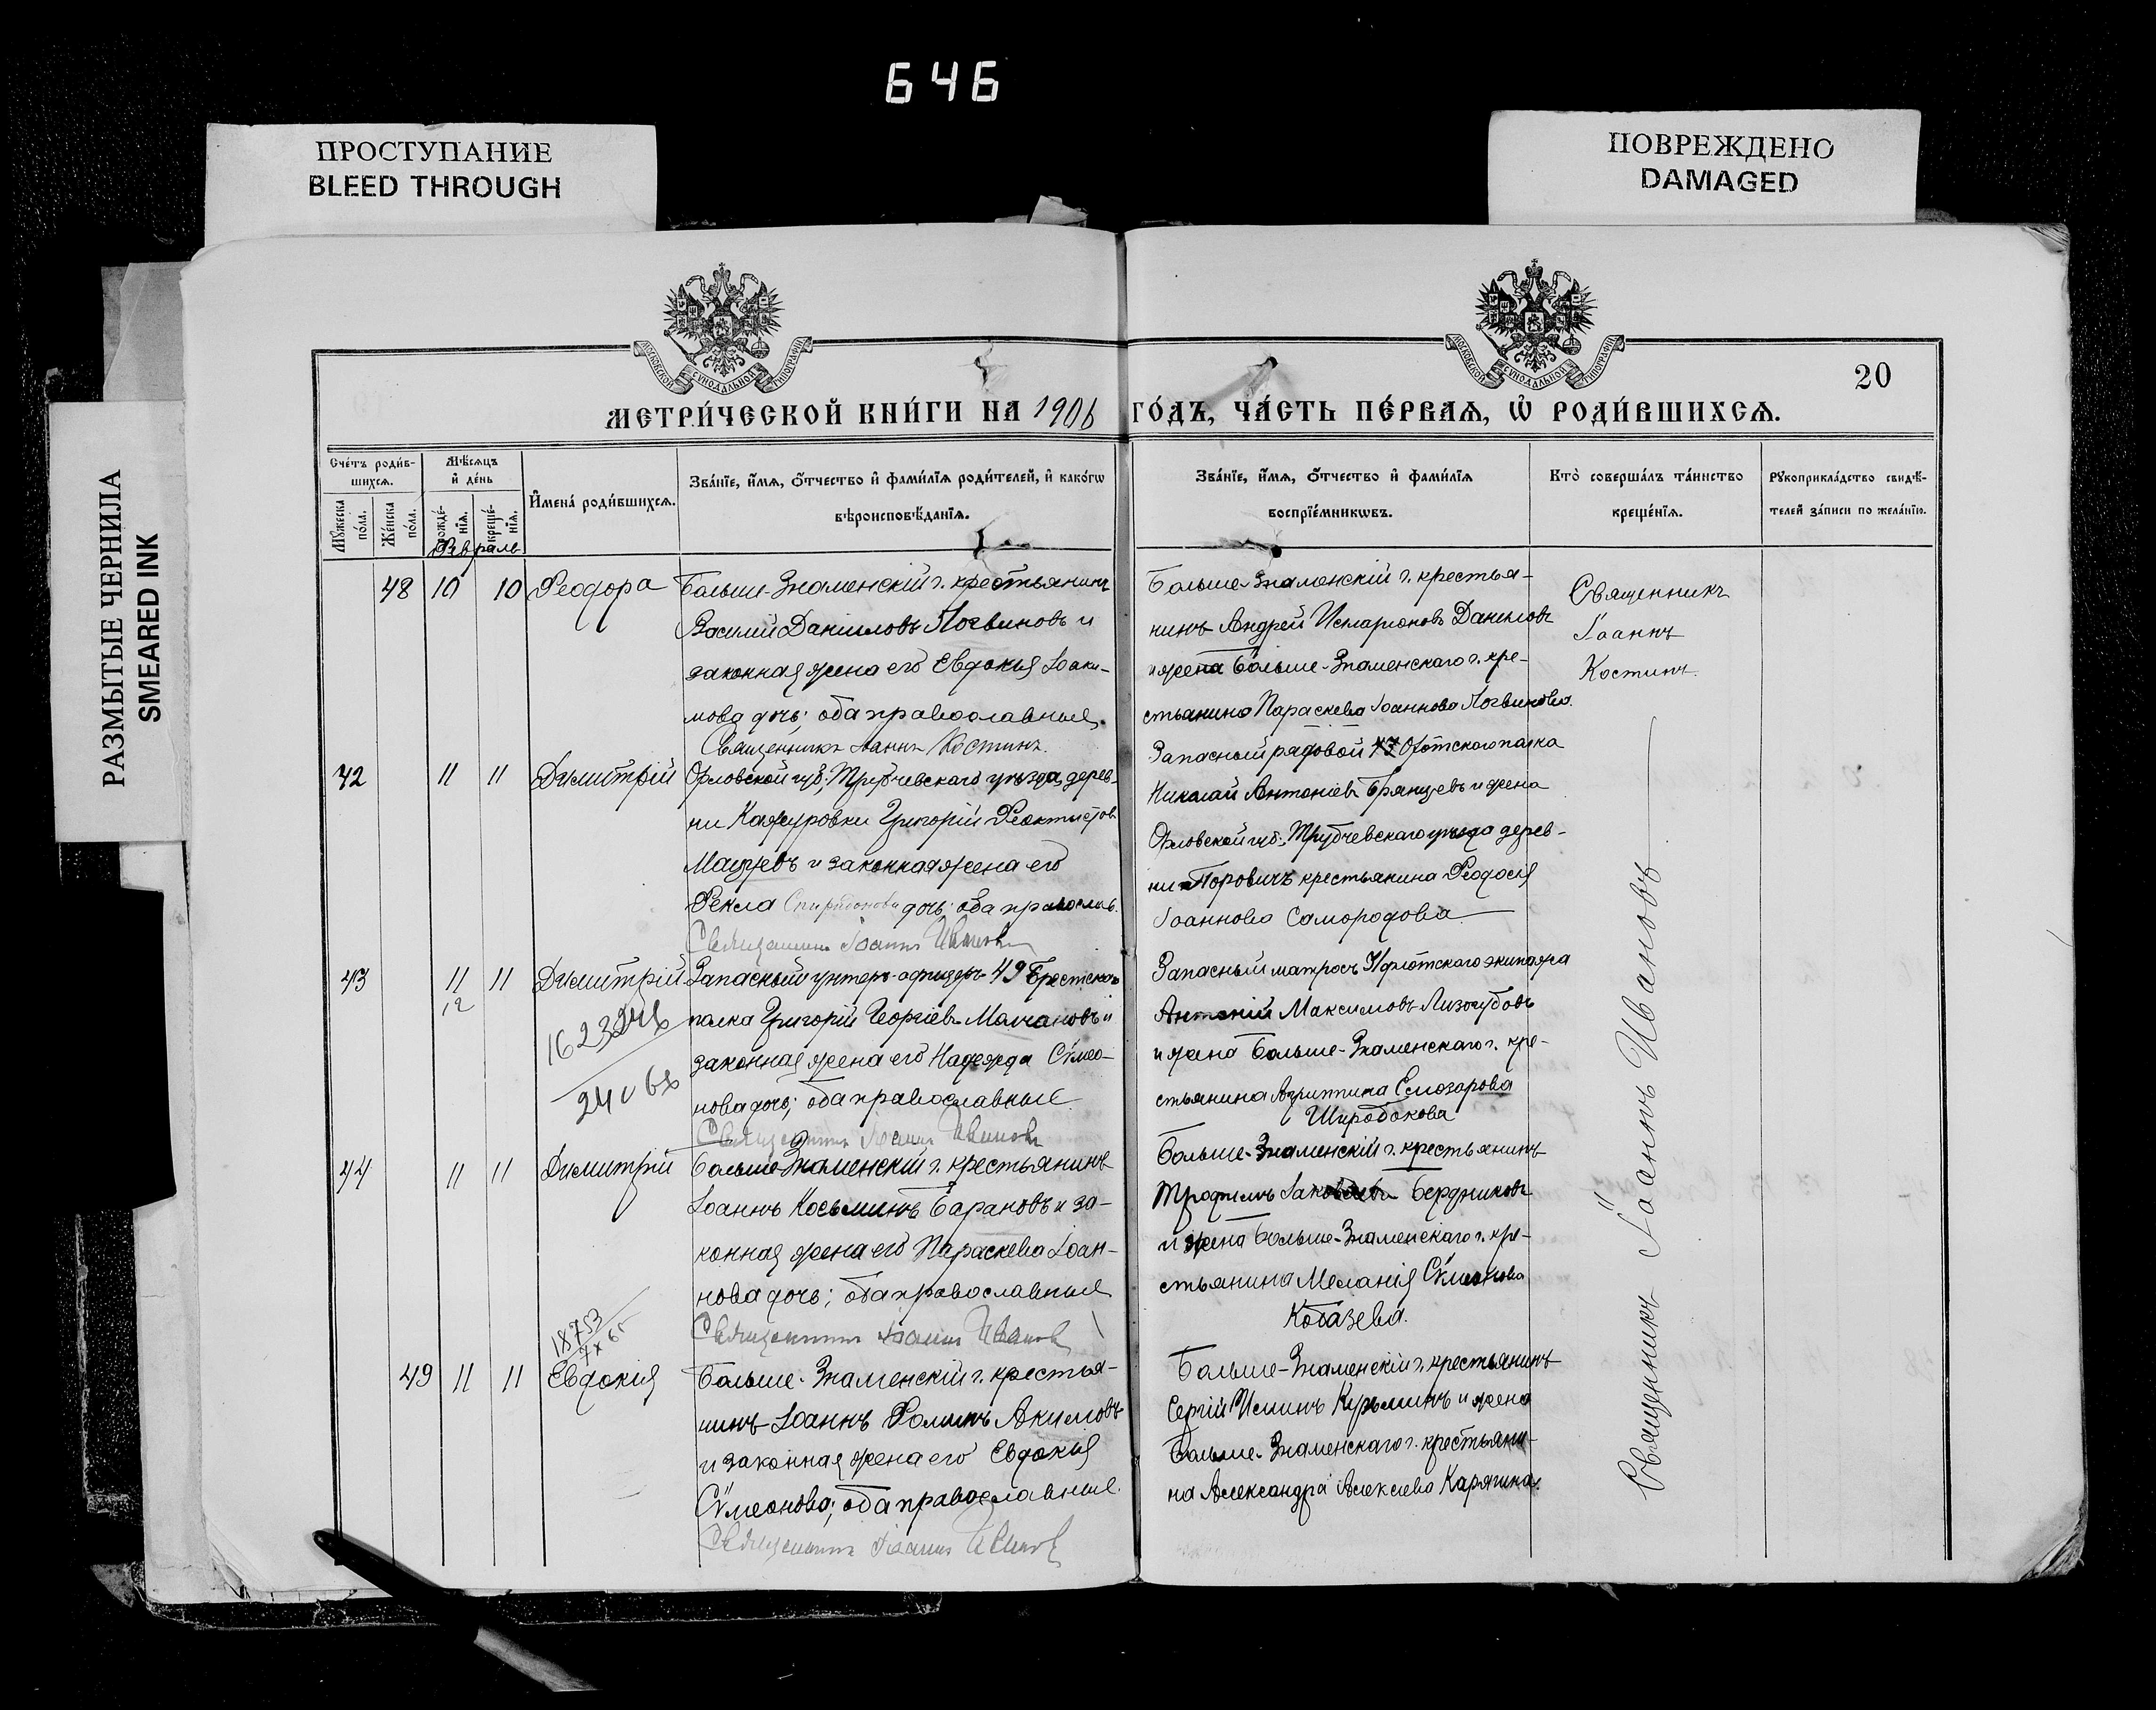 646
ПРОСТУПАНИЕ
BLEED THROUGH
ПОВРЕЖДЕНО
DAMAGED
РАЗМЫТЫЕ ЧЕРНИЛА
SMEARED INK
МОСКОВСКОЙ СѴНОДАЛЬНОЙ ТИПОГРАФІИ
МОСКОВСКОЙ СѴНОДАЛЬНОЙ ТИПОГРАФІИ
20
МЕТРИ́ЧЕСКОЙ КНИ́ГИ НА 1906 ГО́ДЪ, ЧА́СТЬ ПЕ́РВАѦ, Ѽ РОДИ́ВШИХСѦ.
Сче́тъ роди́в-
шихсѧ.
Мꙋжеска по́ла.
Же́нска по́ла.
Мѣ́сѧцъ
и҆ де́нь
рожде́-
нїѧ.
креще́-
нїѧ.
И҆мена̀ роди́вшихсѧ.
Зва́нїе, и҆́мѧ, ѻ҆́тчество и҆ фами́лїѧ роди́телей, и҆ како́гѡ
вѣроисповѣ́данїѧ.
Зва́нїе, и҆́мѧ, ѻ҆́тчество и҆ фами́лїѧ
воспрїе́мникѡвъ.
Кто̀ соверша́лъ та́инство
креще́нїѧ.
Рꙋкоприкла́дство свидѣ́-
телей за́писи по жела́нїю.
Февраль
48 10 10 Ѳеодора
Больше-Знаменскій г. крестьянинъ
Василій Даніиловъ Логвиновъ и
законная жена его Евдокія Іоаки-
мова дочь; оба православные.
Священникъ Іоаннъ Костинъ.
Больше-Знаменскій г. крестья-
нинъ Андрей Иларіоновъ Даниловъ
и жена Больше-Знаменскаго г. кре-
стьянина Параскева Іоаннова Логвинова.
Священникъ
Іоаннъ
Костинъ.
42 11 11 Димитрій
Орловской губ; Трубчевскаго уѣзда, дерев-
ни Григорій Ѳеоктистовъ
и законная жена его
Ѳекла Спиридонова дочь; оба православ.
Священникъ Іоаннъ Ивановъ
Запасный рядовой 43 Охотскаго полка
Николай Антоніевъ Брянцевъ и жена
Орловской губ; Трубчевскаго уѣзда дерев-
ни крестьянина Ѳеодосія
Іоаннова Самородова
43 11 11 Димитрій
12
Запасный унтеръ-офицеръ 49 Брестскаго
полка Григорій Георгіевъ Молчановъ и
законная жена его Надежда Сѵмео-
нова дочь; оба православные
Священникъ Іоаннъ Ивановъ
Запасный матросъ 31 флотскаго экипажа
Антоній Максимовъ Лизогубовъ
и жена Больше-Знаменскаго г. кре-
стьянина Агриппина
Широбокова
44 11 11 Димитрій
Больше-Знаменскій г. крестьянинъ
Іоаннъ Косьминъ Барановъ и за-
конная жена его Параскева Іоан-
нова дочь; оба православные
Священникъ Іоаннъ Ивановъ
Больше-Знаменскій г. крестьянинъ
Трофимъ Іаковлевъ Бердниковъ
и жена Больше-Знаменскаго г. кре-
стьянина Меланія Сѵмеонова
Кобазева.
18753
49 11 11 Евдокія
Больше-Знаменскій г. крестья-
нинъ Іоаннъ Ѳоминъ Акимовъ
и законная жена его Евдокія
Сѵмеонова; оба православные.
Священникъ Іоаннъ Ивановъ
Больше-Знаменскій г. крестьянинъ
Сергій Кузьминъ и жена
Больше-Знаменскаго г. крестьяни-
на Александра Алексіева Карягина.
Священникъ Іоаннъ Ивановъ